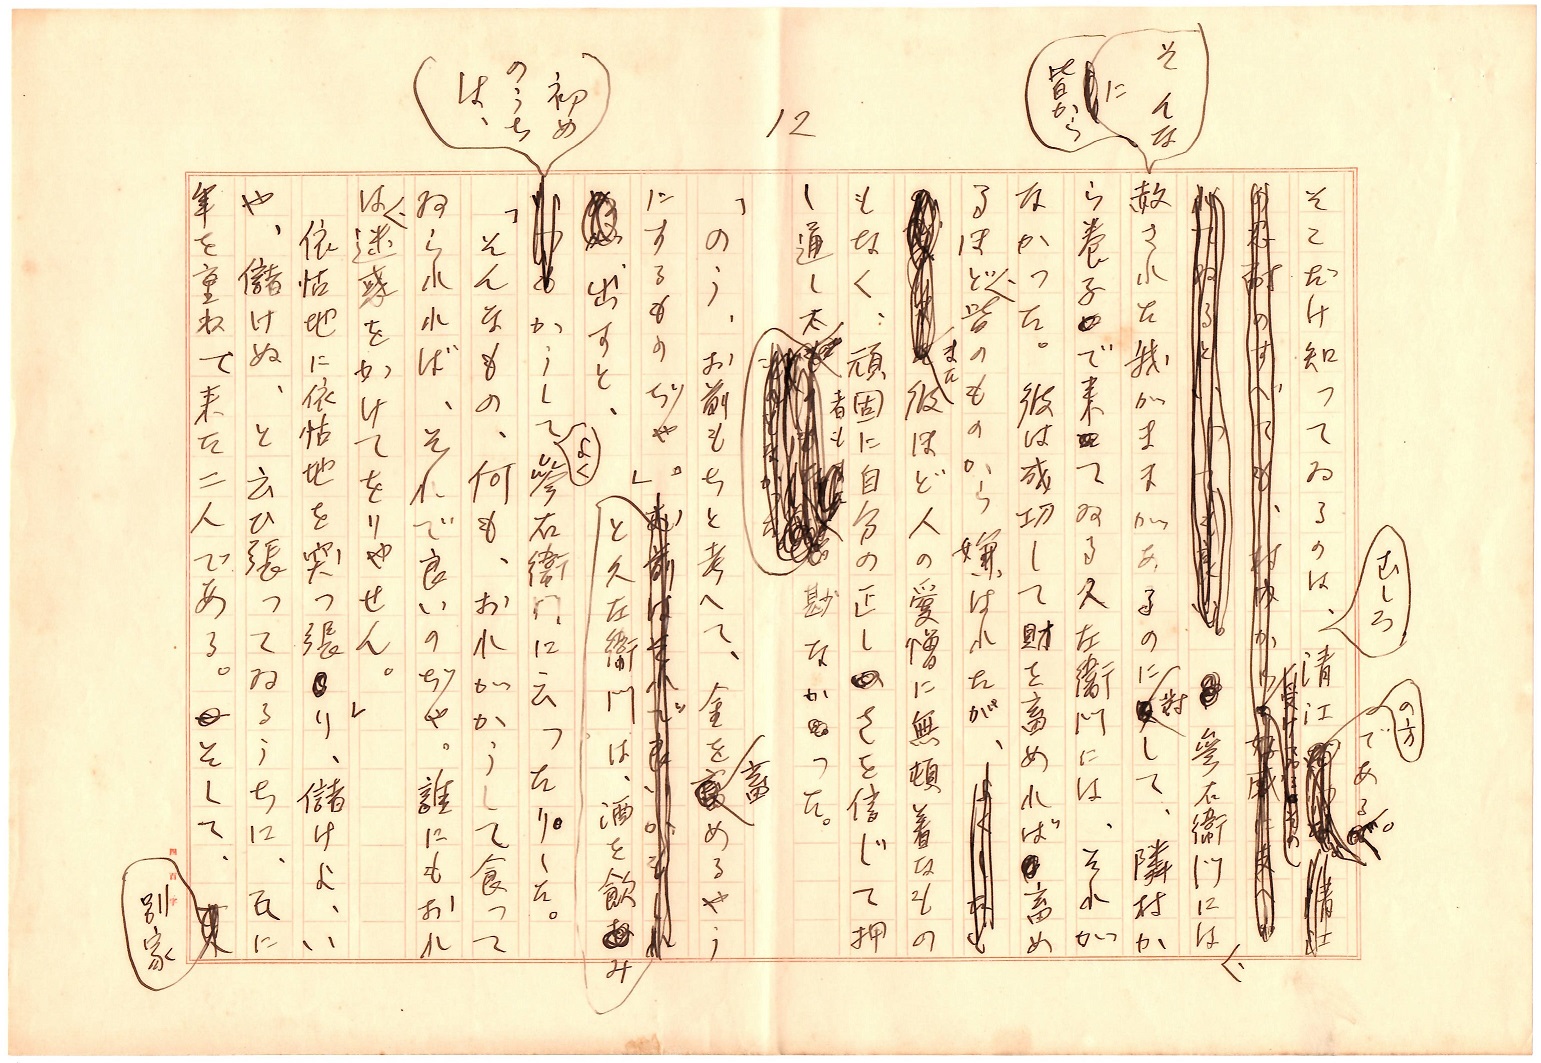 12
そこだけ知つてゐるのは、むしろ清江の方である。
參右衛門には
そんなに皆から
赦された我がままがあるのに對して、隣村か
ら養子で来てゐる久左衛門には、それが
なかつた。彼は成功して財を畜めれば畜め
るほど皆のものから嫌はれたが、
また彼ほど人の愛憎に無頓着なもの
もなく、頑固に自分の正しさを信じて押
し通した者も
勘なかつた。
「のう、お前もちと考へて、金を畜めるやう
にするものぢや。」
と久左衛門は、酒を飲み
出すと、
初めのうちは、
かうしてよく參右衛門に云つたりした。
「そんなもの、何も、おれがかうして食つて
ゐられれば、それで良いのぢや。誰にもおれ
は迷惑をかけてをりやせん。」
依怙地に依怙地を突つ張り、儲けよ、い
や、儲けぬ、と云ひ張つてゐるうちに、互に
年を重ねて来た二人である。そして、
別家
四百字